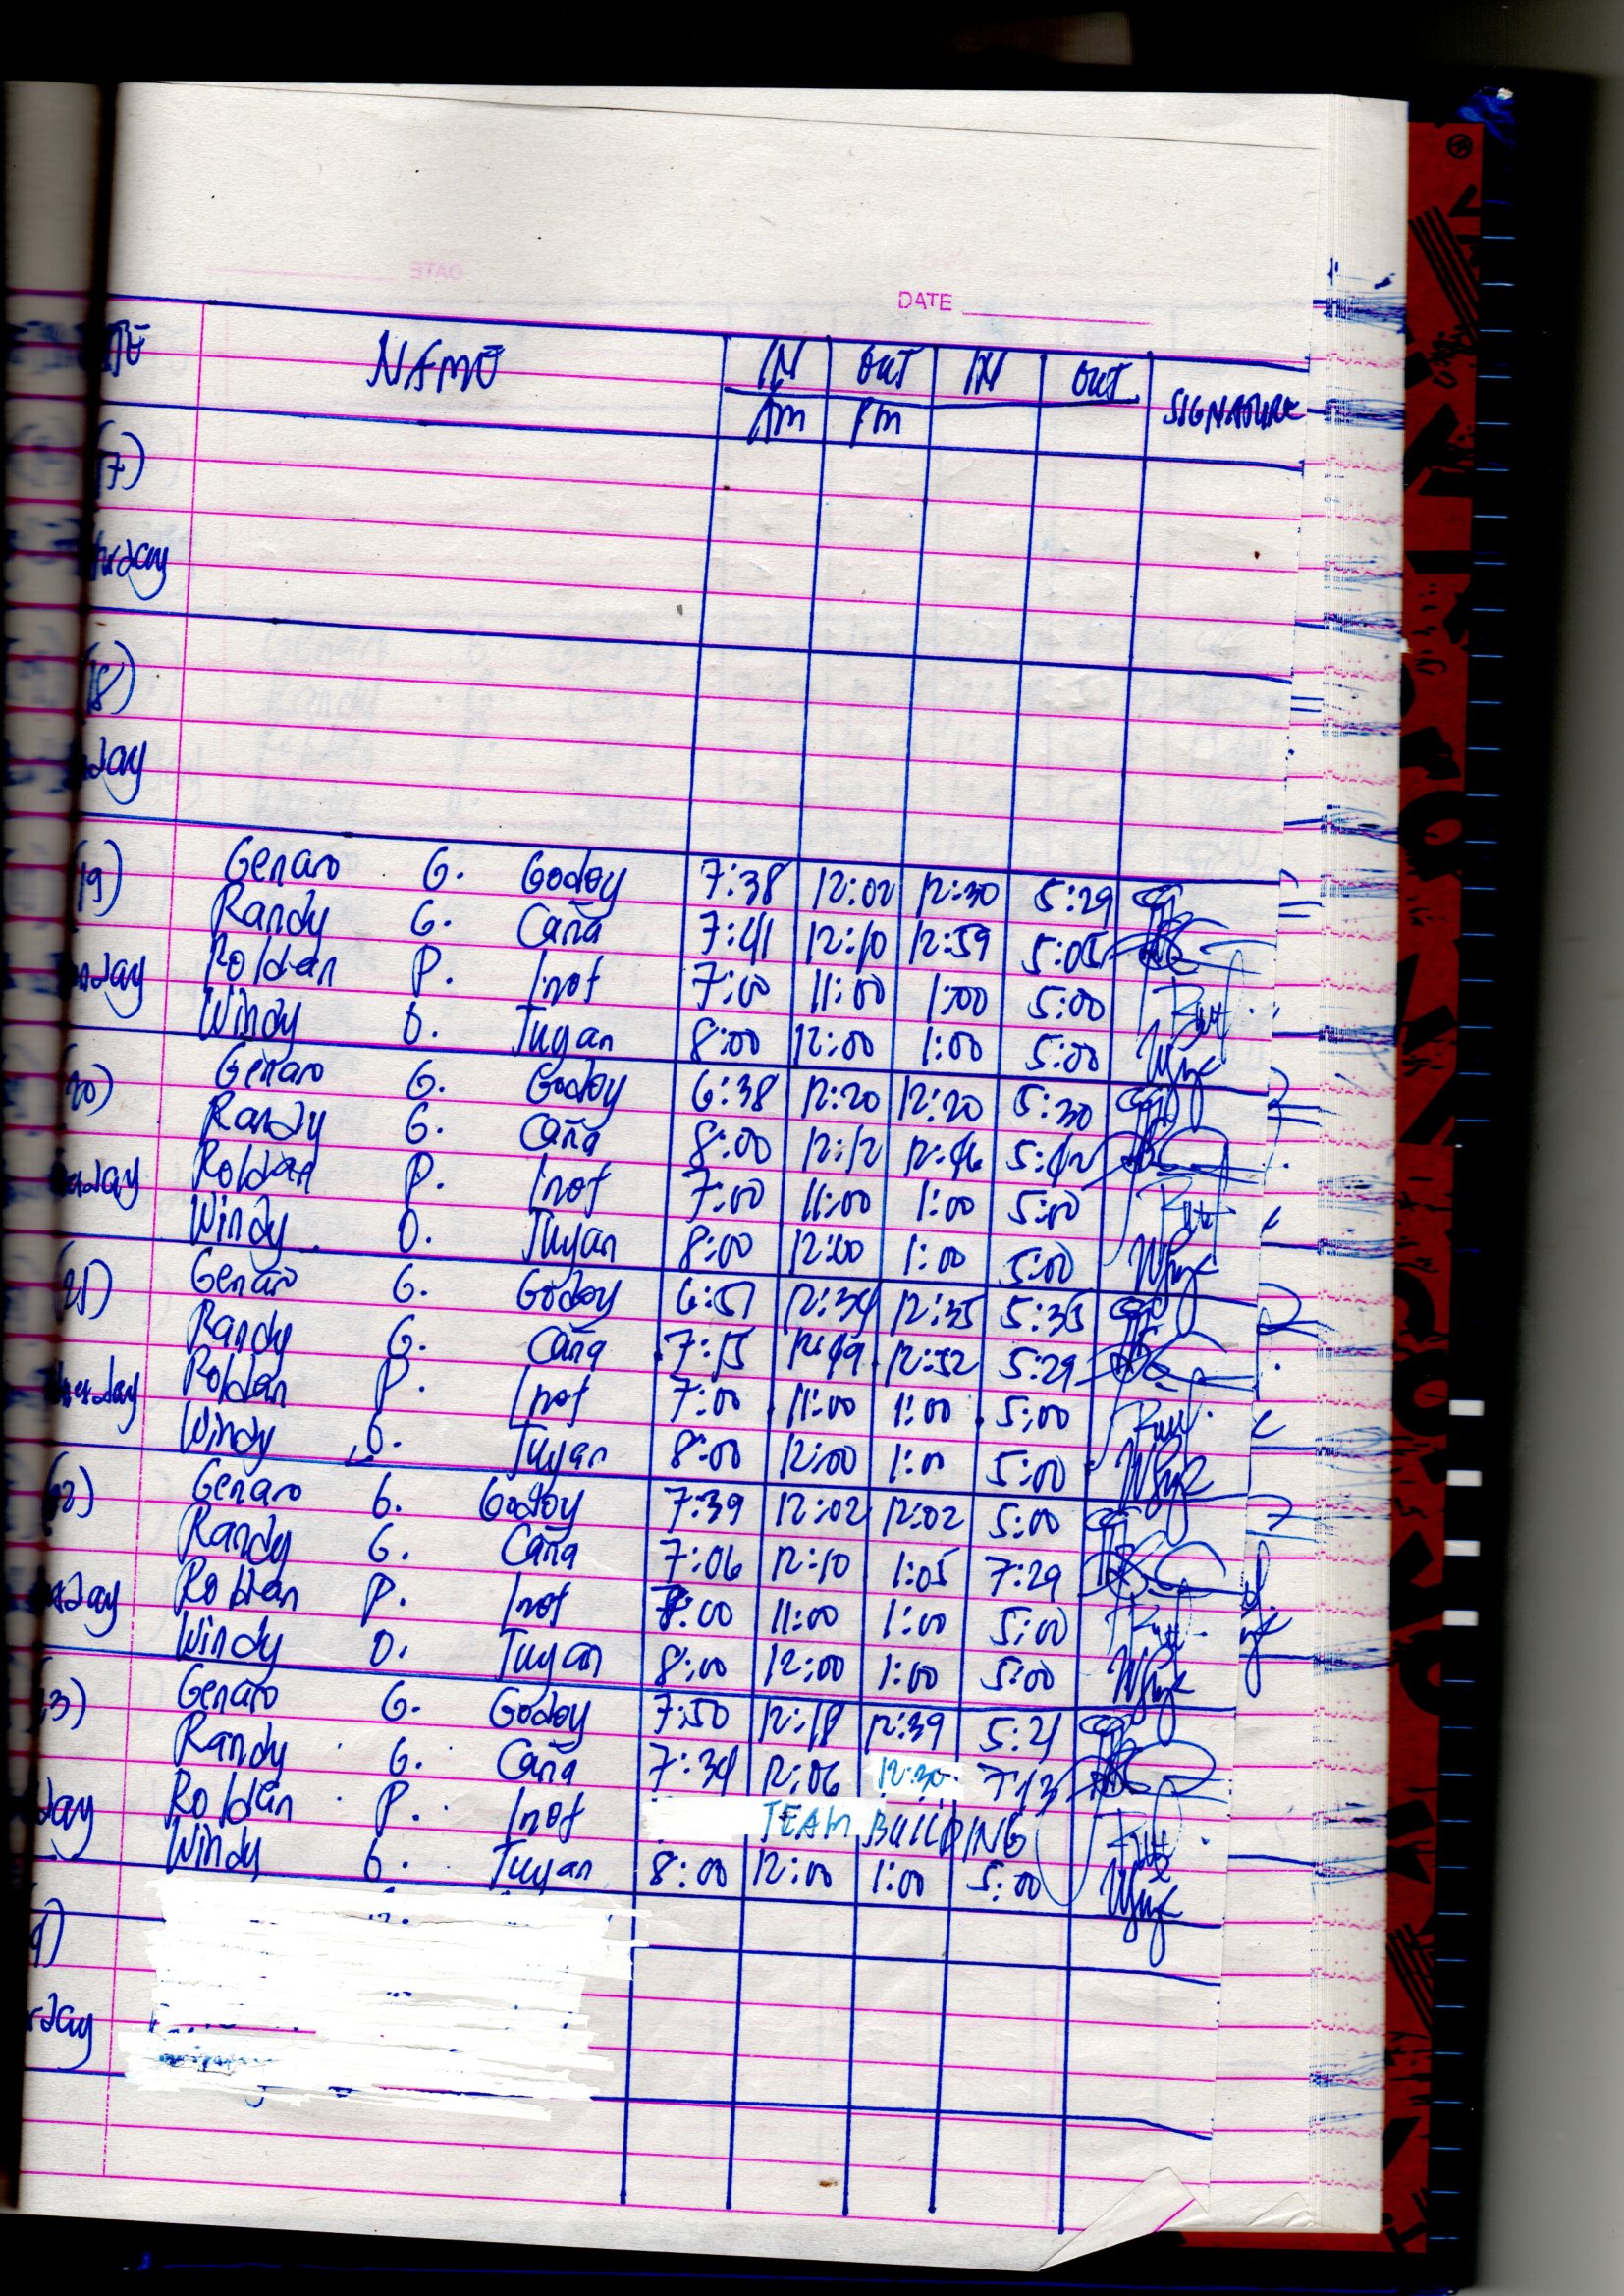 DATE
NAME IN OUT IN OUT SIGNATURE
Am Pm
17)
18)
day
19) Genaro G. Godoy 7:38 12:02 12:30 5:29
Randy G. Caña 7:41 12:10 12:59 5:05
day Roldan P. Inot 7:00 11:00 1:00 5:00
Windy O. Tuyan 8:00 12:00 1:00 5:00
20) Genaro G. Godoy 6:38 12:20 12:20 5:30
Randy G. Caña 8:00 12:12 12:46
day Roldan P. Inot 7:00 11:00 1:00 5:00
Windy O. Tuyan 8:00 12:00 1:00 5:00
21) Genaro G. Godoy 6:51 12:34 12:35 5:35
Randy G. Caña 7:15 12:49 12:52 5:29
day Roldan P. Inot 7:00 11:00 1:00 5:00
Windy O. Tuyan 8:00 12:00 1:00 5:00
22) Genaro G. Godoy 7:39 12:02 12:02 5:00
Randy G. Caña 7:06 12:10 1:05 7:29
day Roldan P. Inot 7:00 11:00 1:00 5:00
Windy O. Tuyan 8:00 12:00 1:00 5:00
3) Genaro G. Godoy 7:50 12:18 12:39 5:21
Randy G. Caña 7:34 12:06 12:30 7:13
day Roldan P. Inot TEAM BUILDING
Windy O. Tuyan 8:00 12:00 1:00 5:00
rday